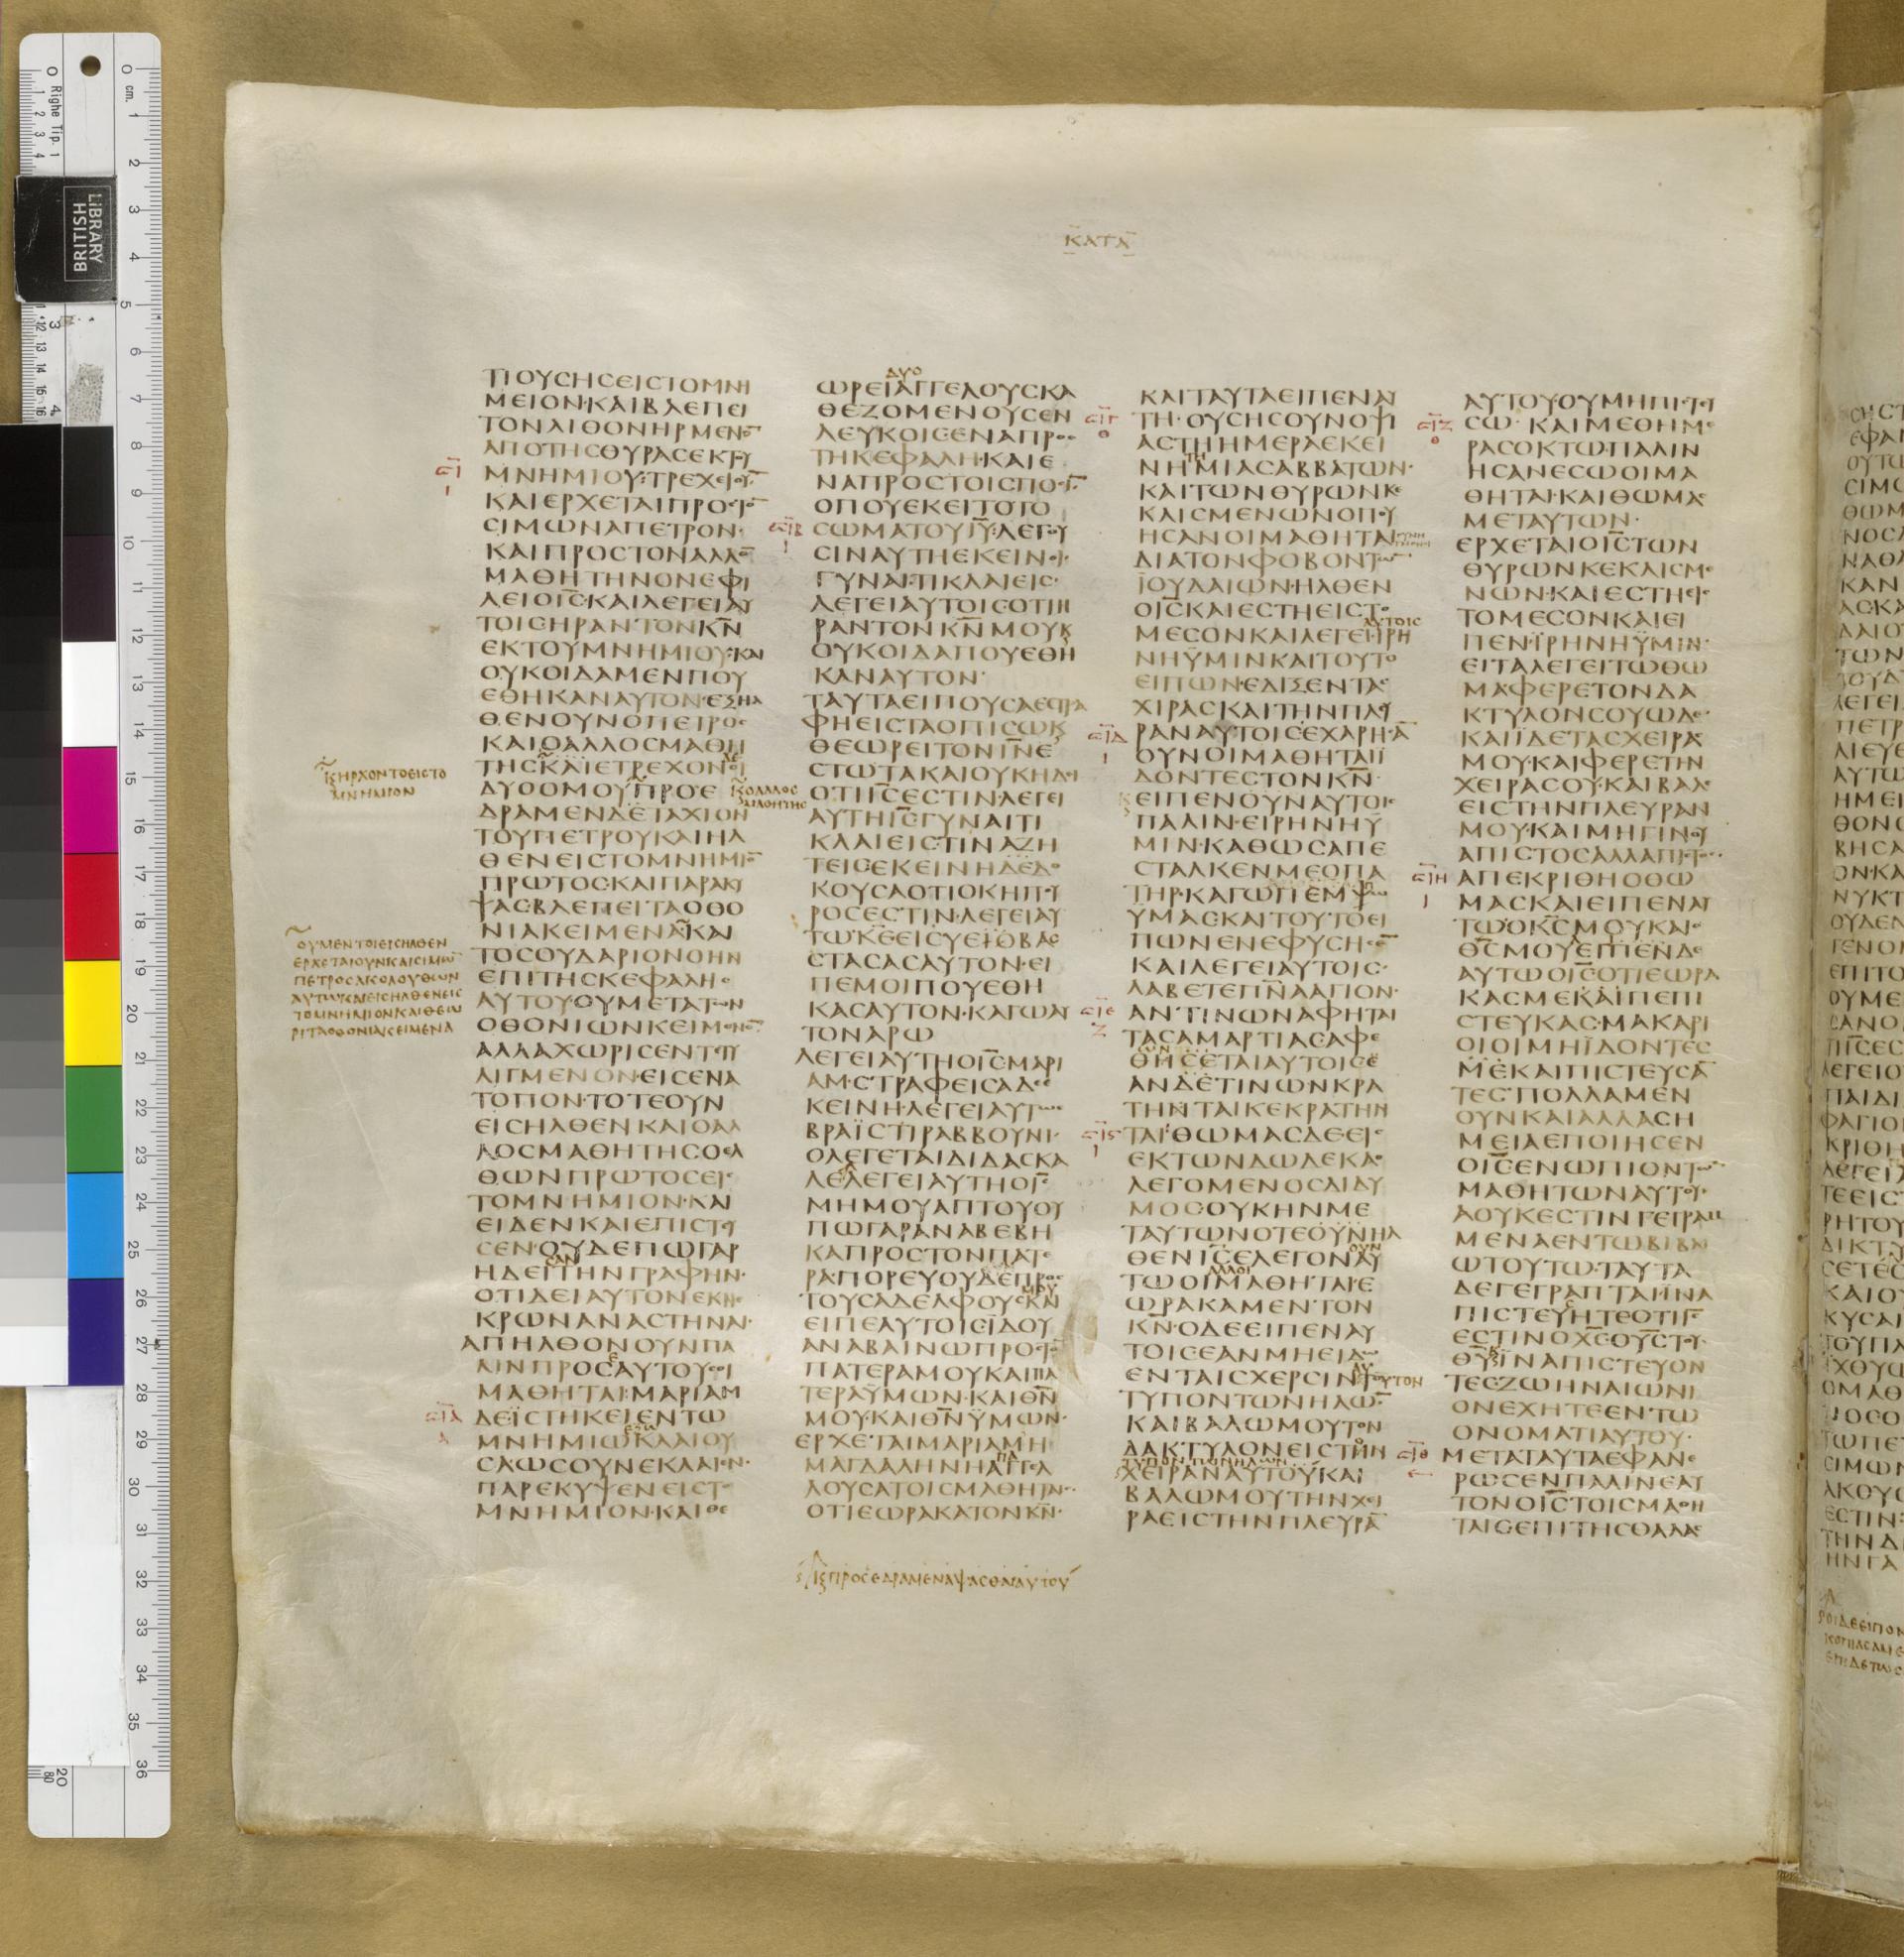 ΚΑΤΑ
ΠΟΥΣΗΣΕΙΣΤΟΜΝΗ
ΜΕΙΟΝ·ΚΑΙΒΛΕΠΕΙ
ΤΟΝΛΙΘΟΝΗΡΜΕΝΟ̅
ΑΠΟΤΗΣΘΥΡΑΣΕΚΤΟΥ
ΜΝΗΜΙΟΥ:ΤΡΕΧΕΙΟΥ̅
ΚΑΙΕΡΧΕΤΑΙΠΡΟΣΤΟ̅
ΣΙΜΩΝΑΠΕΤΡΟΝ·
ΚΑΙΠΡΟΣΤΟΝΑΛΛΟ̅
ΜΑΘΗΤΗΝΟΝΕΦΙ
ΛΕΙΟΙ̅Σ̅·ΚΑΙΛΕΓΕΙΑΥ
ΤΟΙΣΗΡΑΝΤΟΝΚ̅Ν̅
ΕΚΤΟΥΜΝΗΜΙΟΥ·ΚΑΙ
ΟΥΚΟΙΔΑΜΕΝΠΟΥ
ΕΘΗΚΑΝΑΥΤΟΝ·ΕΞΗΛ
ΘΕΝΟΥΝΟΠΕΤΡΟΣ
ΚΑΙΟΑΛΛΟΣΜΑΘΗ
ΤΗΣΚΑΙΕΤΡΕΧΟΝΟΙ
ΔΥΟΟΜΟΥΠΡΟΕ
ΔΡΑΜΕΝΔΕΤΑΧΙΟΝ
ΤΟΥΠΕΤΡΟΥΚΑΙΗΛ
ΘΕΝΕΙΣΤΟΜΝΗΜΙΟ̅
ΠΡΩΤΟΣ·ΚΑΙΠΑΡΑΚΥ
ΨΑΣ·ΒΛΕΠΕΙΤΑΟΘΟ
ΝΙΑΚΕΙΜΕΝΑΚΑΙ
ΤΟΣΟΥΔΑΡΙΟΝΟΗΝ
ΕΠΙΤΗΣΚΕΦΑΛΗΣ
ΑΥΤΟΥ·ΟΥΜΕΤΑΤΩΝ
ΟΘΟΝΙΩΝΚΕΙΜΕΝΟ̅
ΑΛΛΑΧΩΡΙΣΕΝΤΕΤΥ
ΛΙΓΜΕΝΟΝ·ΕΙΣΕΝΑ
ΤΟΠΟΝ·ΤΟΤΕΟΥΝ
ΕΙΣΗΛΘΕΝΚΑΙΟΑΛ
ΛΟΣΜΑΘΗΤΗΣΟΕΛ
ΘΩΝΠΡΩΤΟΣΕΙΣ
ΤΟΜΝΗΜΙΟΝ·ΚΑΙ
ΕΙΔΕΝΚΑΙΕΠΙΣΤΕΥ
ΣΕΝ·ΟΥΔΕΠΩΓΑΡ
ΗΔΕΙΤΗΝΓΡΑΦΗΝ·
ΟΤΙΔΕΙΑΥΤΟΝΕΚΝΕ
ΚΡΩΝΑΝΑΣΤΗΝΑΙ·
ΑΠΗΛΘΟΝΟΥΝΠΑ
ΛΙΝΠΡΟΣΑΥΤΟΥΣΟΙ
ΜΑΘΗΤΑΙ:ΜΑΡΙΑΜ
ΔΕΪΣΤΗΚΕΙΕΝΤΩ
ΜΝΗΜΙΩΚΛΑΙΟΥ
ΣΑΩΣΟΥΝΕΚΛΑΙΕΝ·
ΠΑΡΕΚΥΨΕΝΕΙΣΤΟ
ΜΝΗΜΙΟΝ·ΚΑΙΘΕ
ΔΥΟ
ΩΡΕΙΑΓΓΕΛΟΥΣΚΑ
ΘΕΖΟΜΕΝΟΥΣΕΝ
ΛΕΥΚΟΙΣΕΝΑΠΡΟΣ
ΤΗΚΕΦΑΛΗ·ΚΑΙΕ
ΝΑΠΡΟΣΤΟΙΣΠΟΣΙ̅
ΟΠΟΥΕΚΕΙΤΟΤΟ
ΣΩΜΑΤΟΥΙ̅Υ̅:ΛΕΓΟΥ
ΣΙΝΑΥΤΗΕΚΕΙΝΟΙ·
ΓΥΝΑΙΤΙΚΛΑΙΕΙΣ·
ΛΕΓΕΙΑΥΤΟΙΣΟΤΙΗ
ΡΑΝΤΟΝΚ̅Ν̅ΜΟΥΚ
ΟΥΚΟΙΔΑΠΟΥΕΘΗ
ΚΑΝΑΥΤΟΝ·
ΤΑΥΤΑΕΙΠΟΥΣΑΕΣΤΡΑ
ΦΗΕΙΣΤΑΟΠΙΣΩΚ
ΘΕΩΡΕΙΤΟΝΙ̅Ν̅Ε
ΣΤΩΤΑΚΑΙΟΥΚΗΔΙ
ΟΤΙΙ̅Σ̅ΕΣΤΙΝ·ΛΕΓΕΙ
ΑΥΤΗΙ̅Σ̅ΓΥΝΑΙΤΙ
ΚΛΑΙΕΙΣΤΙΝΑΖΗ
ΤΕΙΣΕΚΕΙΝΗΔΕΔΟ
ΚΟΥΣΑΟΤΙΟΚΗΠΟΥ
ΡΟΣΕΣΤΙΝ·ΛΕΓΕΙΑΥ
ΤΩΚ̅Ε̅ΕΙΣΥΕΙΟΒΑΣ
ΣΤΑΣΑΣΑΥΤΟΝ·ΕΙ
ΠΕΜΟΙΠΟΥΕΘΗ
ΚΑΣΑΥΤΟΝ·ΚΑΓΩΑΥ
ΤΟΝΑΡΩ
ΛΕΓΕΙΑΥΤΗΟΙ̅Σ̅ΜΑΡΙ
ΑΜ·ΣΤΡΑΦΕΙΣΑΔΕΕ
ΚΕΙΝΗ·ΛΕΓΕΙΑΥΤΩ
ΒΡΑΪΣΤΙΡΑΒΒΟΥΝΙ·
ΟΛΕΓΕΤΑΙΔΙΔΑΣΚΑ
ΛΕΛΕΓΕΙΑΥΤΗΟΙ̅Σ̅
ΜΗΜΟΥΑΠΤΟΥΟΥ
ΠΩΓΑΡΑΝΑΒΕΒΗ
ΚΑΠΡΟΣΤΟΝΠΑΤΕ
ΡΑ·ΠΟΡΕΥΟΥΔΕΠΡΟΣ
ΤΟΥΣΑΔΕΛΦΟΥΣΚΑΙ
ΕΙΠΕΑΥΤΟΙΣΪΔΟΥ
ΑΝΑΒΑΙΝΩΠΡΟΣΤΟ̅
ΠΑΤΕΡΑΜΟΥΚΑΙΠΑ
ΤΕΡΑΫΜΩΝ·ΚΑΙΘ̅Ν̅
ΜΟΥ·ΚΑΙΘ̅Ν̅ΫΜΩΝ·
ΕΡΧΕΤΑΙΜΑΡΙΑΜΗ
ΜΑΓΔΑΛΗΝΗΑΓΓΕΛ
ΛΟΥΣΑΤΟΙΣΜΑΘΗΤΑΙΣ·
ΟΤΙΕΩΡΑΚΑΤΟΝΚ̅Ν̅·
ΚΑΙΤΑΥΤΑΕΙΠΕΝΑΥ
ΤΗ·ΟΥΣΗΣΟΥΝΟΨΙ
ΑΣΤΗΗΜΕΡΑΕΚΕΙ
ΝΗΜΙΑΣΑΒΒΑΤΩΝ·
ΚΑΙΤΩΝΘΥΡΩΝΚΕ
ΚΛΙΣΜΕΝΩΝΟΠΟΥ
ΗΣΑΝΟΙΜΑΘΗΤΑΙ
ΔΙΑΤΟΝΦΟΒΟΝΤΩ̅
ΪΟΥΔΑΙΩΝ·ΗΛΘΕΝ
ΟΙ̅Σ̅ΚΑΙΕΣΤΗΕΙΣΤΟ
ΑΥΤΟΙΣ
ΜΕΣΟΝΚΑΙΛΕΓΕΙΙΡΗ
ΝΗΫΜΙΝΚΑΙΤΟΥΤΟ
ΕΙΠΩΝ·ΕΔΙΞΕΝΤΑΣ
ΧΙΡΑΣΚΑΙΤΗΝΠΛΕΥ
ΡΑΝΑΥΤΟΙΣΕΧΑΡΗΣΑ̅
ΟΥΝΟΙΜΑΘΗΤΑΙΪ
ΔΟΝΤΕΣΤΟΝΚ̅Ν̅·
ΕΙΠΕΝΟΥΝΑΥΤΟΙΣ
ΠΑΛΙΝ·ΕΙΡΗΝΗΫ
ΜΙΝ·ΚΑΘΩΣΑΠΕ
ΣΤΑΛΚΕΝΜΕΟΠΑ
ΤΗΡ·ΚΑΓΩΠΕΜΨΩ
ΫΜΑΣ·ΚΑΙΤΟΥΤΟΕΙ
ΠΩΝΕΝΕΦΥΣΗΣΕ̅
ΚΑΙΛΕΓΕΙΑΥΤΟΙΣ·
ΛΑΒΕΤΕΠ̅Ν̅Α̅ΑΓΙΟΝ·
ΑΝΤΙΝΩΝΑΦΗΤΑΙ
ΤΑΣΑΜΑΡΤΙΑΣΑΦΕ
ΘΗΣΕΤΑΙΑΥΤΟΙΣΕ
ΑΝΔΕΤΙΝΩΝΚΡΑ
ΤΗΝΤΑΙΚΕΚΡΑΤΗΝ
ΤΑΙ·ΘΩΜΑΣΔΕΕΙΣ
ΕΚΤΩΝΔΩΔΕΚΑΟ
ΛΕΓΟΜΕΝΟΣΔΙΔΥ
ΜΟΣΟΥΚΗΝΜΕ
ΤΑΥΤΩΝΟΤΕΟΥΝΗΛ
ΘΕΝΙ̅Σ̅ΕΛΕΓΟΝΑΥ
ΤΩΟΙΜΑΘΗΤΑΙ·Ε
ΩΡΑΚΑΜΕΝΤΟΝ
Κ̅Ν̅·ΟΔΕΕΙΠΕΝΑΥ
ΤΟΙΣΕΑΝΜΗΕΙΔΩ
ΕΝΤΑΙΣΧΕΡΣΙΝΤΟΝ
ΤΥΠΟΝΤΩΝΗΛΩ̅
ΚΑΙΒΑΛΩΜΟΥΤΟΝ
ΔΑΚΤΥΛΟΝΕΙΣΤΗΝ
ΧΕΙΡΑΝΑΥΤΟΥΚΑΙ
ΒΑΛΩΜΟΥΤΗΝΧΕΙ
ΡΑΕΙΣΤΗΝΠΛΕΥΡΑ̅
ΑΥΤΟΥΟΥΜΗΠΙΣΤΕΥ
ΣΩ·ΚΑΙΜΕΘΗΜΕ
ΡΑΣΟΚΤΩΠΑΛΙΝ
ΗΣΑΝΕΣΩΟΙΜΑ
ΘΗΤΑΙ·ΚΑΙΘΩΜΑΣ
ΜΕΤΑΥΤΩΝ·
ΕΡΧΕΤΑΙΟΙ̅Σ̅ΤΩΝ
ΘΥΡΩΝΚΕΚΛΙΣΜΕ
ΝΩΝ·ΚΑΙΕΣΤΗΕΙΣ
ΤΟΜΕΣΟΝΚΑΙΕΙ
ΠΕΝ·ΪΡΗΝΗΫΜΙΝ·
ΕΙΤΑΛΕΓΕΙΤΩΘΩ
ΜΑΦΕΡΕΤΟΝΔΑ
ΚΤΥΛΟΝΣΟΥΩΔΕ·
ΚΑΙΪΔΕΤΑΣΧΕΙΡΑΣ
ΜΟΥ·ΚΑΙΦΕΡΕΤΗΝ
ΧΕΙΡΑΣΟΥ·ΚΑΙΒΑΛΕ
ΕΙΣΤΗΝΠΛΕΥΡΑΝ
ΜΟΥ·ΚΑΙΜΗΓΙΝΟΥ
ΑΠΙΣΤΟΣΑΛΛΑΠΙΣΤΟΣ·
ΑΠΕΚΡΙΘΗΟΘΩ
ΜΑΣΚΑΙΕΙΠΕΝΑΥ
ΤΩΟΚ̅Σ̅ΜΟΥΚΑΙΟ
Θ̅Σ̅ΜΟΥΕΙΠΕΝΔΕ
ΑΥΤΩΟΙ̅Σ̅ΟΤΙΕΩΡΑ
ΚΑΣΜΕΚΑΙΠΕΠΙ
ΣΤΕΥΚΑΣ·ΜΑΚΑΡΙ
ΟΙΟΙΜΗΪΔΟΝΤΕΣ
ΜΕΚΑΙΠΙΣΤΕΥΣΑ̅
ΤΕΣ·ΠΟΛΛΑΜΕΝ
ΟΥΝΚΑΙΑΛΛΑΣΗ
ΜΕΙΑΕΠΟΙΗΣΕΝ
ΟΙ̅Σ̅ΕΝΩΠΙΟΝΤΩ̅
ΜΑΘΗΤΩΝΑΥΤΟΥ·
ΑΟΥΚΕΣΤΙΝΓΕΓΡΑΜ
ΜΕΝΑΕΝΤΩΒΙΒΛΙ
ΩΤΟΥΤΩ·ΤΑΥΤΑ
ΔΕΓΕΓΡΑΠΤΑΙΪΝΑ
ΠΙΣΤΕΥΗΤΕΟΤΙΙ̅Σ̅
ΕΣΤΙΝΟΧ̅Σ̅ΟΥ̅Σ̅ΤΟΥ
Θ̅Υ̅ΪΝΑΠΙΣΤΕΥΟΝ
ΤΕΣ·ΖΩΗΝΑΙΩΝΙ
ΟΝΕΧΗΤΕΕΝΤΩ
ΟΝΟΜΑΤΙΑΥΤΟΥ·
ΜΕΤΑΤΑΥΤΑΕΦΑΝΕ
ΡΩΣΕΝΠΑΛΙΝΕΑΥ
ΤΟΝΟΙ̅Σ̅ΤΟΙΣΜΑΘΗ
ΤΑΙΣΕΠΙΤΗΣΘΑΛΑΣ
ΚΣΗΡΧΟΝΤΟΕΙΣΤΟ
ΜΝΗΜΙΟΝ
ΟΥΜΕΝΤΟΙΕΙΣΗΛΘΕΝ
ΕΡΧΕΤΑΙΟΥΝΚΑΙΣΙΜΩ̅
ΠΕΤΡΟΣΑΚΟΛΟΥΘΩΝ
ΑΥΤΩΚΑΙΕΙΣΗΛΘΕΝΕΙΣ
ΤΟΜΝΗΜΙΟΝΚΑΙΘΕΩ
ΡΙΤΑΟΘΟΝΙΑΚΕΙΜΕΝΑ
ΚΠΡΟΣΕΔΡΑΜΕΝΑΨΑΣΘΑΙΑΥΤΟΥ
BRITISH
LIBRARY
cm.
Righe Tip. 1